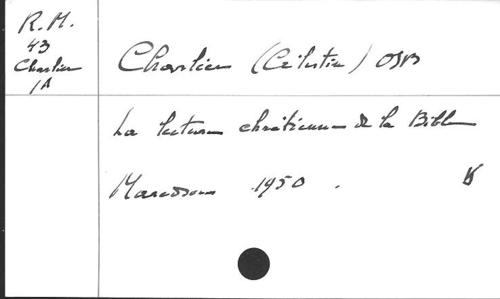 R.M.
43
Charlier
1A
Charlier (Célestin) OSB
La lecture chrétienne de la Bible
Maredsous 1950.